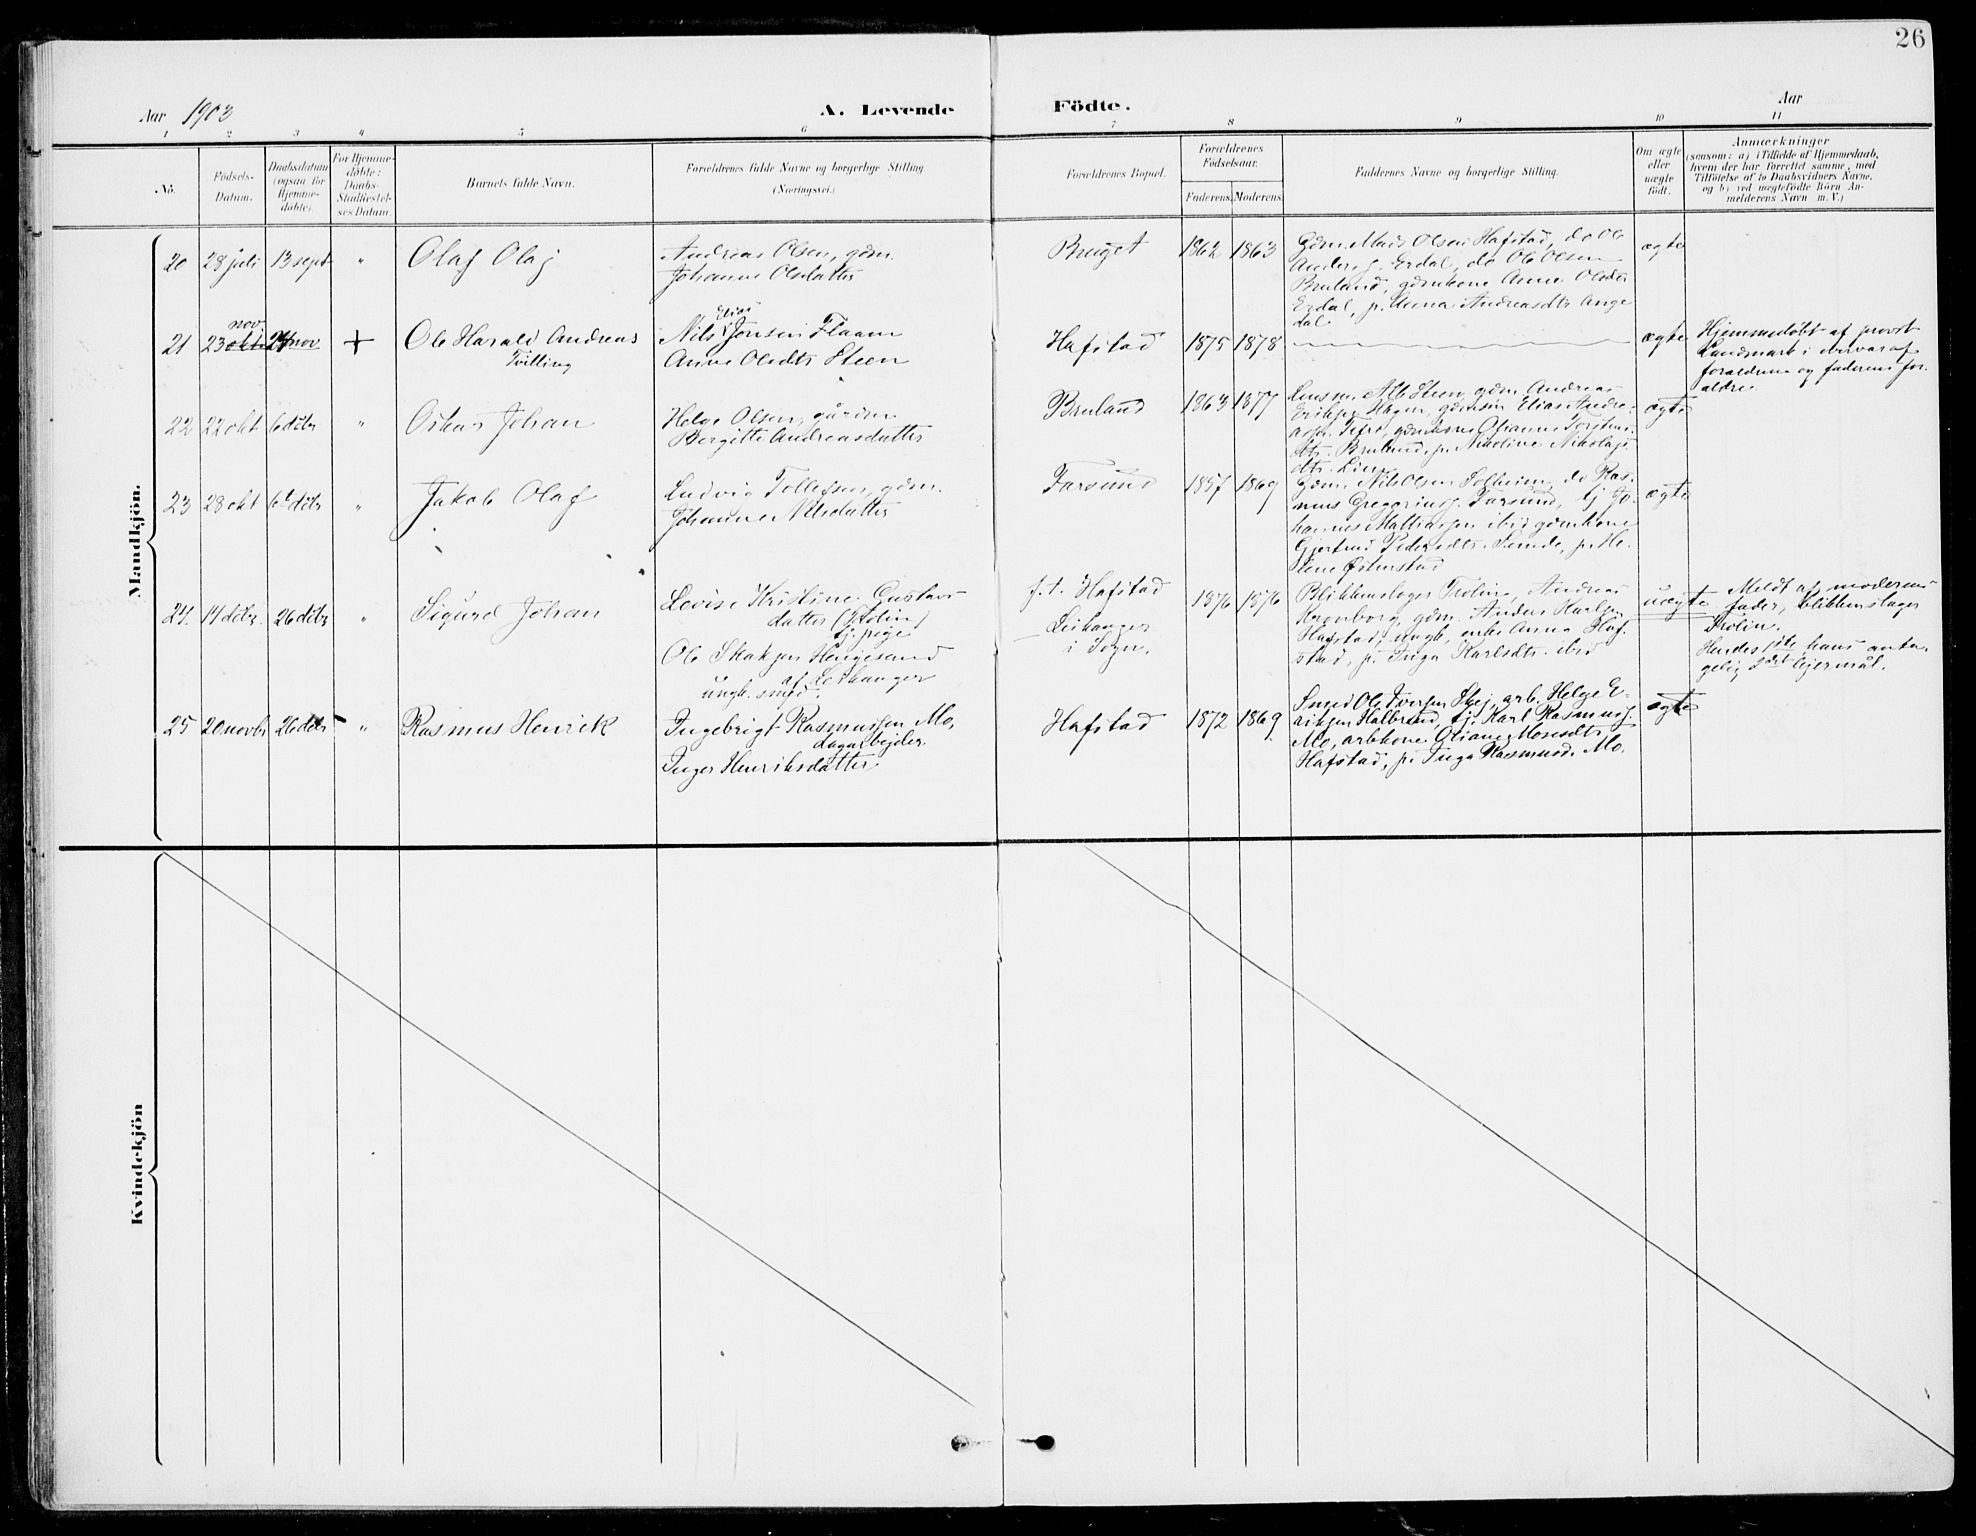 26
Aar 1903
A. Levende Födte.
Aar
1 2 3 4 5 6 7 8 9 10 11
No.
Födsels-
Datum.
Daabsdatum
(ogsaa for
Hjemme-
döbte).
For Hjemme-
döbte:
Daabs-
Stadfæstel-
ses Datum.
Barnets fulde Navn.
Forældrenes fulde Navne og borgerlige Stilling.
(Næringsvei.)
Forældrenes Bopæl.
Forældrenes
Födselsaar.
Faderens. Moderens.
Faddernes Navne og borgerlige Stilling.
Om ægte
eller
uægte
födt.
Anmærkninger
(saasom: a) i Tilfælde af Hjemmedaab,
hvem der har forrettet samme, med
Tilföielse af to Daabsvidners Navne,
og b) ved uægtefödte Börn An-
melderens Navn m. V.)
Mandkjön.
20 28 juli 13 sept "
Olaf Olaj
Andreas Olsen, gdm.
Johanne Olsdatter
Bruget
1862 1863
Gdm. Mads Olsen Hafstad, do Ole
Anders. Erdal, do Ole Olsen
Bruland, gdmkone Anne Olsdtr
Erdal, p. Anna Andreasdtr Ange
dal
ægte
21 23 okt nov. 24 nov +
Ole Harald Andreas
Tvilling
Nils Elias Jensen Flaam
Anne Olsdtr Steen
Hafstad
1875 1878
ægte
Hjemmedøbt af provst
Landmark i nærvær af
forældrene og faderens for-
ældre.
22 22 okt 6 dcbr "
Oskar Johan
Helge Olsen, gårdm.
Bergitte Andreasdatter
Bruland
1863 1877
Lensm. Alb Steen, gdm. Andreas
Eriksen Hagen, gdmsøn Elias Andre-
assen Tefre, gdmkone Johanne Torstens-
dtr. Bruland, p. Nikoline Nikolajs-
dtr. Lien
ægte
23 28 okt 6te dcbr "
Jakob Olaf
Ludvig Tollefsen, gdm.
Johanne Nilsdatter
Farsund
1857 1869
Gdm. Nils Olsen Solheim, do Ras-
mus Gregorius. Farsund, tj. Jo-
hannes Mattiassen ibid gdmkone
Gjertrud Pedersdtr. Sunde, p. He-
lene Østenstad
ægte
24. 14 dcbr. 26 dcbr "
Sigurd Johan
Lovise Kristine Gustavs-
datter (Trolin)
tj. pige
Ole Skaksen Hengesand
af Leikanger
ungk. smed.
f. t. Hafstad
Leikanger
i Sogn.
1876 1876
Blikkenslager Trolin, Andreas
Kronborg, gdm. Anders Karlsen
Hafstad, ungk., enke Anna Haf-
stad, pi Inga Karlsdtr. ibid
uægte
Meldt af moderens
fader, blikkenslager
Trolin.
Hendes 1ste hans anta-
gelig 2det lejermål.
25 20 novbr 26 dcbr "
Rasmus Henrik
Ingebrigt Rasmussen Mo,
dagarbejder
Inger Henriksdatter
Hafstad
1872 1869
Smed Ole Iversen Skej, arb. Helge E-
riksen Halbrend, tj. Karl Rasmuss.
Mo, arbkone Oliane Mosesdtr.
Hafstad, pi Inga Rasmusd. Mo.
ægte
Kvindekjön